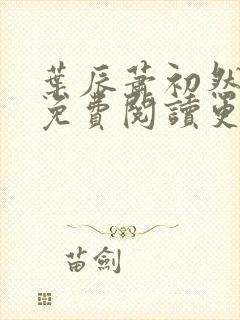 葉辰蕭初然
免費閱讀更
苗劍